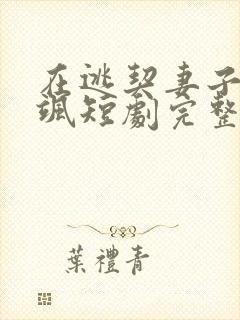 在逃契妻子
飒短剧完整
葉禮青